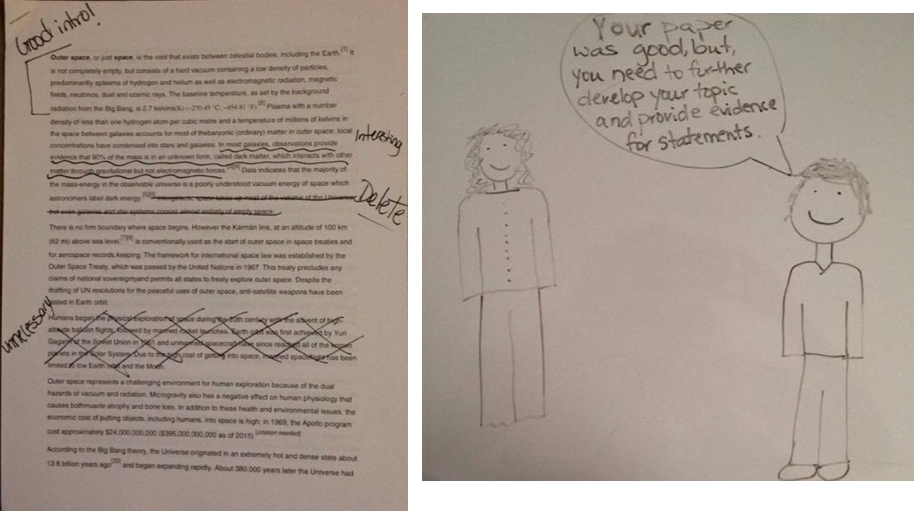 Good intro!
Outer space, or just space, is the void that exists between celestial bodies, including the Earth.[1] It
is not completely empty, but consists of a hard vacuum containing a low density of particles,
predominantly a plasma of hydrogen and helium as well as electromagnetic radiation, magnetic
fields, neutrinos, dust and cosmic rays. The baseline temperature, as set by the background
radiation from the Big Bang, is 2.7 kelvins(K) (−270.45 °C; −454.81 °F).[2] Plasma with a number
density of less than one hydrogen atom per cubic metre and a temperature of millions of kelvins in
the space between galaxies accounts for most of thebaryonic (ordinary) matter in outer space; local
concentrations have condensed into stars and galaxies. In most galaxies, observations provide
Interesting
evidence that 90% of the mass is in an unknown form, called dark matter, which interacts with other
matter through gravitational but not electromagnetic forces. Data indicates that the majority of
the mass-energy in the observable universe is a poorly understood vacuum energy of space which
astronomers label dark energy. Intergalactic space takes up most of the volume of the Universe,
Delete
but even galaxies and star systems consist almost entirely of empty space.
There is no firm boundary where space begins. However the Kármán line, at an altitude of 100 km
(62 mi) above sea level,[7][8] is conventionally used as the start of outer space in space treaties and
for aerospace records keeping. The framework for international space law was established by the
Outer Space Treaty, which was passed by the United Nations in 1967. This treaty precludes any
claims of national sovereigntyand permits all states to freely explore outer space. Despite the
drafting of UN resolutions for the peaceful uses of outer space, anti-satellite weapons have been
tested in Earth orbit.
unnecessary
Humans began the physical exploration of space during the 20th century with the advent of high-
altitude balloon flights, followed by manned rocket launches. Earth orbit was first achieved by Yuri
Gagarin of the Soviet Union in 1961 and unmanned spacecraft have since reached all of the known
planets in the Solar System. Due to the high cost of getting into space, manned spaceflight has been
limited to low Earth orbit and the Moon.
Outer space represents a challenging environment for human exploration because of the dual
hazards of vacuum and radiation. Microgravity also has a negative effect on human physiology that
causes bothmuscle atrophy and bone loss. In addition to these health and environmental issues, the
economic cost of putting objects, including humans, into space is high; in 1969, the Apollo program
cost approximately $24,000,000,000 ($395,000,000,000 as of 2015).[citation needed]
According to the Big Bang theory, the Universe originated in an extremely hot and dense state about
13.8 billion years ago and began expanding rapidly. About 380,000 years later the Universe had
Your paper
was good, but,
you need to further
develop your topic
and provide evidence
for statements.